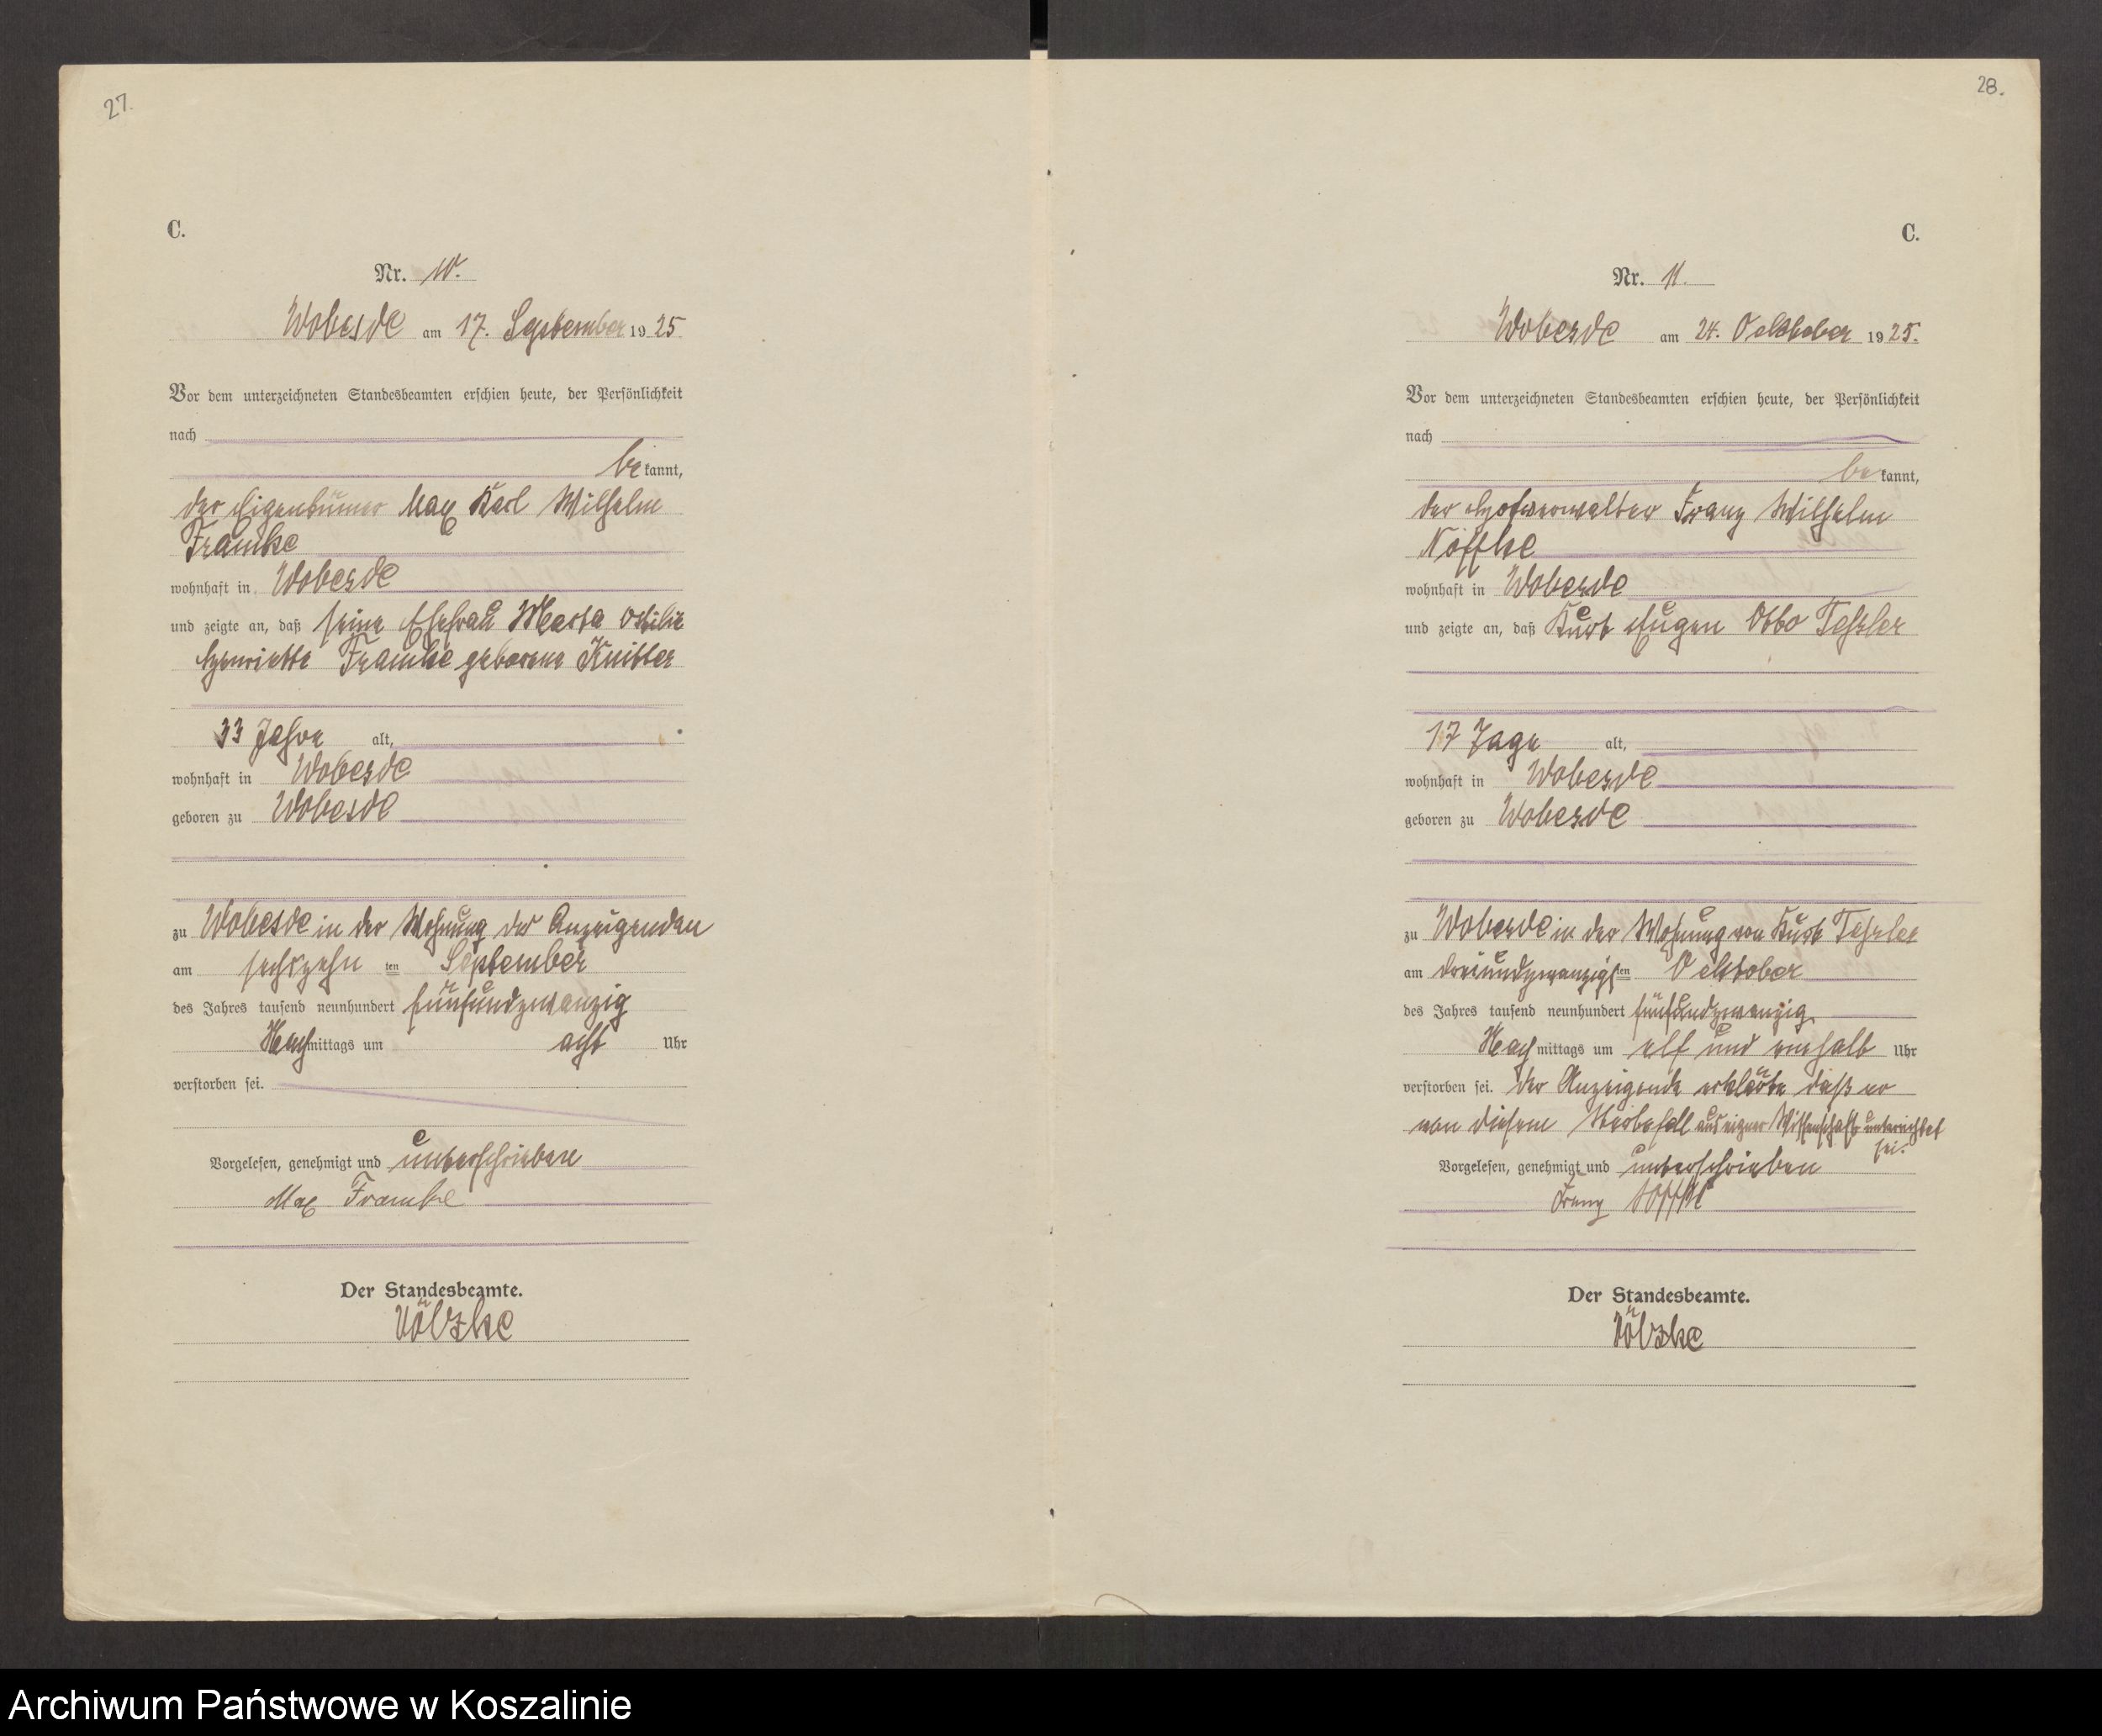 27.
C.
Nr. 10.
Wobesde am 17. September 1925
Vor dem unterzeichneten Standesbeamten erschien heute, der Persönlichkeit
nach
be kannt,
der Eigentümer Max Karl Wilhelm
Framke
wohnhaft in Wobesde
und zeigte an, daß seine Ehefrau Marta Ottilie
Henriette Framke geborene Knitter
33 Jahre alt,
wohnhaft in Wobesde
geboren zu Wobesde
zu Wobesde in der Wohnung des Anzeigenden
am sechszehn ten September
des Jahres tausend neunhundert fünfundzwanzig
Nach mittags um acht Uhr
verstorben sei.
Vorgelesen, genehmigt und unterschrieben
Max Framke
Der Standesbeamte.
Völzke
28.
C.
Nr. 11.
Wobesde am 24. Oektober 1925.
Vor dem unterzeichneten Standesbeamten erschien heute, der Persönlichkeit
nach
be kannt,
der Hofverwalter Franz Wilhelm
Nöffke
wohnhaft in Wobesde
und zeigte an, daß Kurt Eugen Otto Teßler
17 Tage alt,
wohnhaft in Wobesde
geboren zu Wobesde
zu Wobesde in der Wohnung von Kurt Teßler
am dreiundzwanzigs ten Oektober
des Jahres tausend neunhundert fünfundzwanzig
Nach mittags um elf und einhalb Uhr
verstorben sei. Der Anzeigende erklärte daß er
von diesem Sterbefall aus eigner Wissenschaft unterrichtet
sei.
Vorgelesen, genehmigt und unterschrieben
Franz Nöffke
Der Standesbeamte.
Völzke
Archiwum Państwowe w Koszalinie